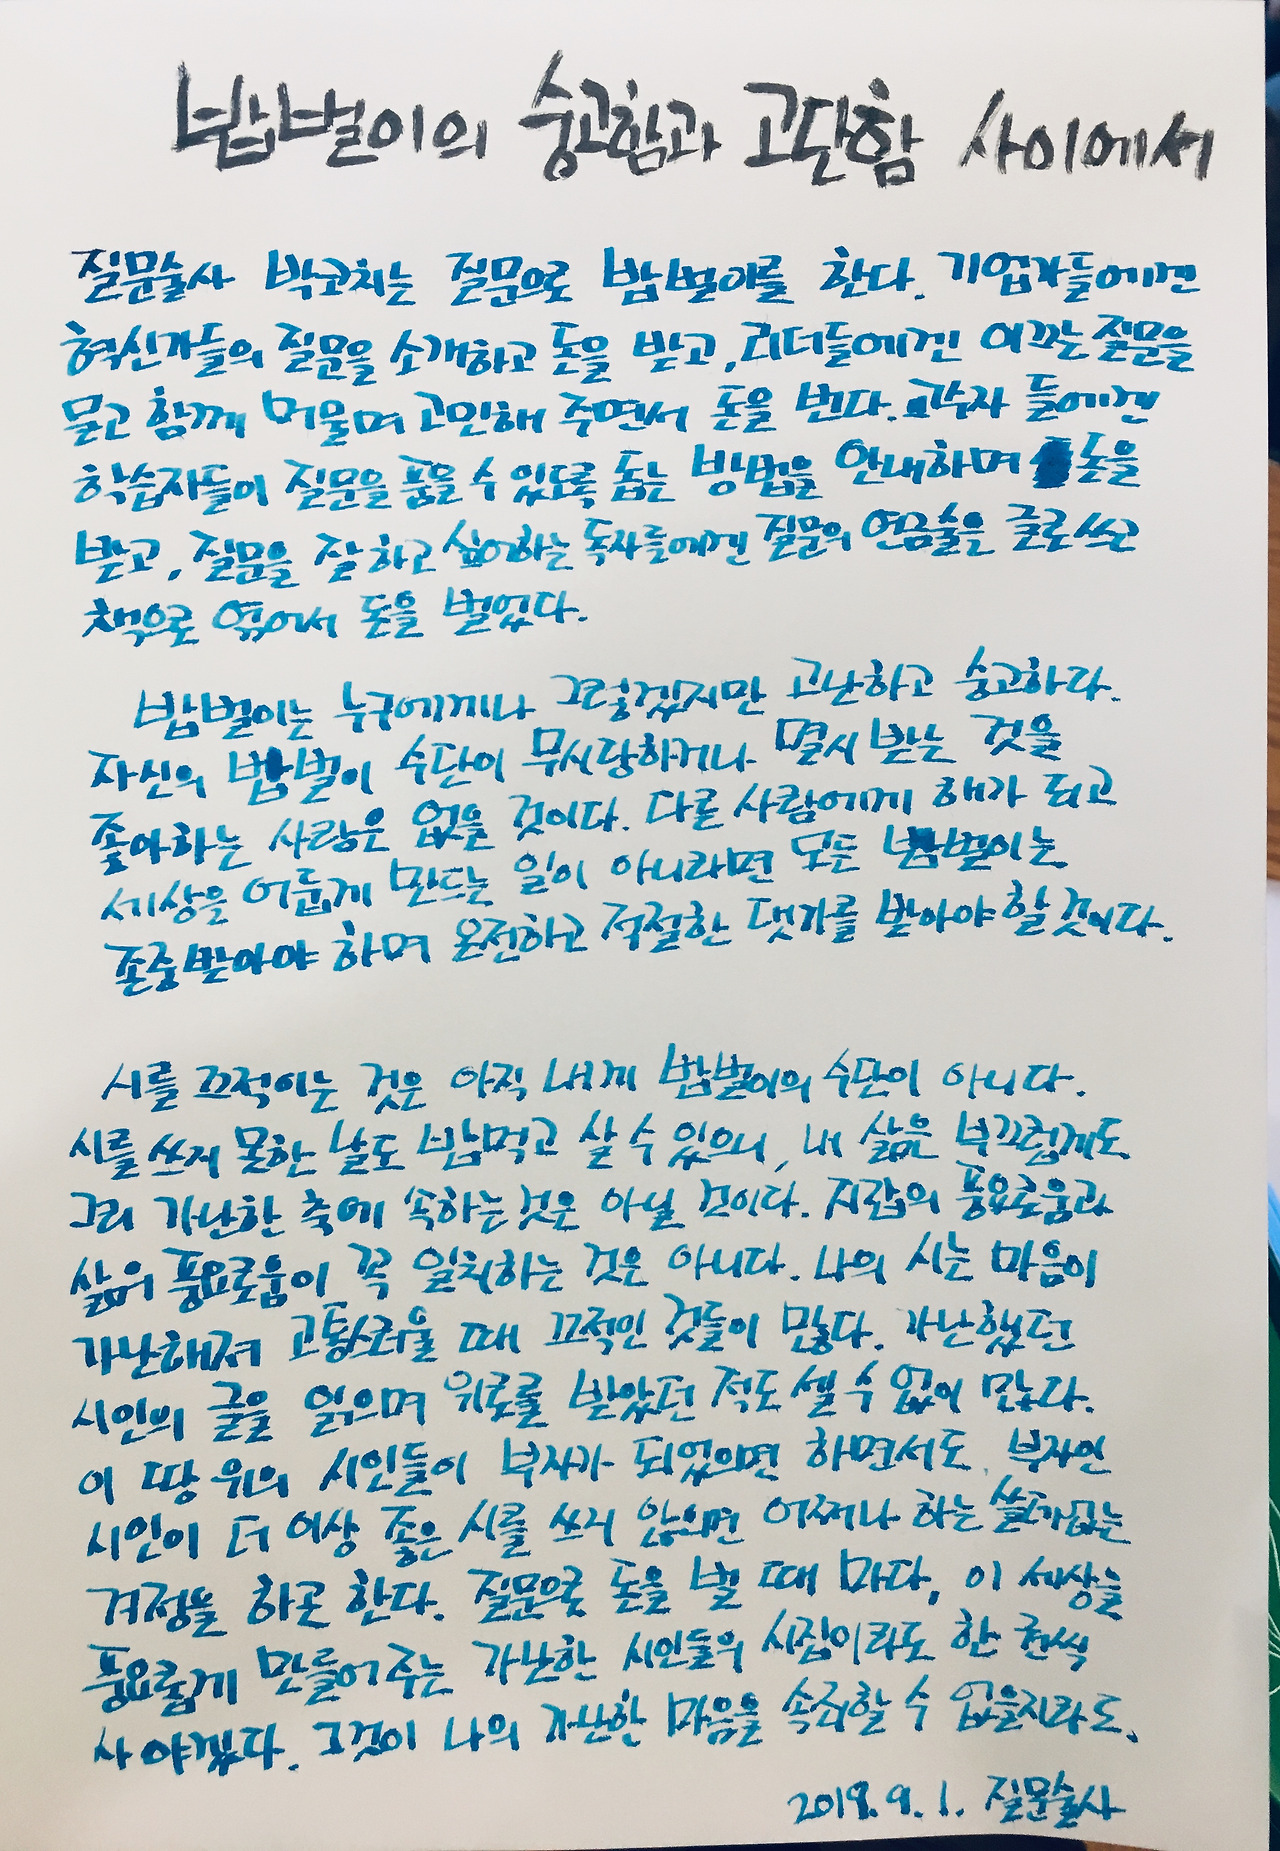 밥벌이의 숭고함과 고단함 사이에서
질문술사 박코치는 질문으로 밥벌이를 한다. 기업가들에겐
혁신가들의 질문을 소개하고 돈을 받고, 리더들에겐 이끄는 질문을
묻고 함께 머물며 고민해 주면서 돈을 번다. 교수자 들에겐
학습자들이 질문을 품을 수 있도록 돕는 방법을 안내하며 돈을
받고, 질문을 잘 하고 싶어하는 독자들에겐 질문의 연금술을 글로 쓰고
책으로 엮어서 돈을 벌었다.
밥벌이는 누구에게나 그렇겠지만 고난하고 숭고하다.
자신의 밥벌이 수단이 무시당하거나 멸시 받는 것을
좋아하는 사람은 없을 것이다. 다른 사람에게 해가 되고
세상을 어둡게 만드는 일이 아니라면 모든 밥벌이는
존중받아야 하며 온전하고 적절한 댓가를 받아야 할 것이다.
시를 끄적이는 것은 아직 내게 밥벌이의 수단이 아니다.
시를 쓰지 못한 날도 밥먹고 살 수 있으니, 내 삶은 부끄럽게도
그리 가난한 축에 속하는 것은 아닐 것이다. 지갑의 풍요로움과
삶의 풍요로움이 꼭 일치하는 것은 아니다. 나의 시는 마음이
가난해져 고통스러울 때 끄적인 것들이 많다. 가난했던
시인의 글을 읽으며 위로를 받았던 적도 셀 수 없이 많다.
이 땅 위의 시인들이 부자가 되었으면 하면서도 부자인
시인이 더 이상 좋은 시를 쓰지 않으면 어쩌나 하는 쓸데없는
걱정을 하곤 한다. 질문으로 돈을 벌 때 마다, 이 세상을
풍요롭게 만들어 주는 가난한 시인들의 시집이라도 한 권씩
사야겠다. 그것이 나의 가난한 마음을 속죄할 수 없을지라도.
2019. 9. 1. 질문술사